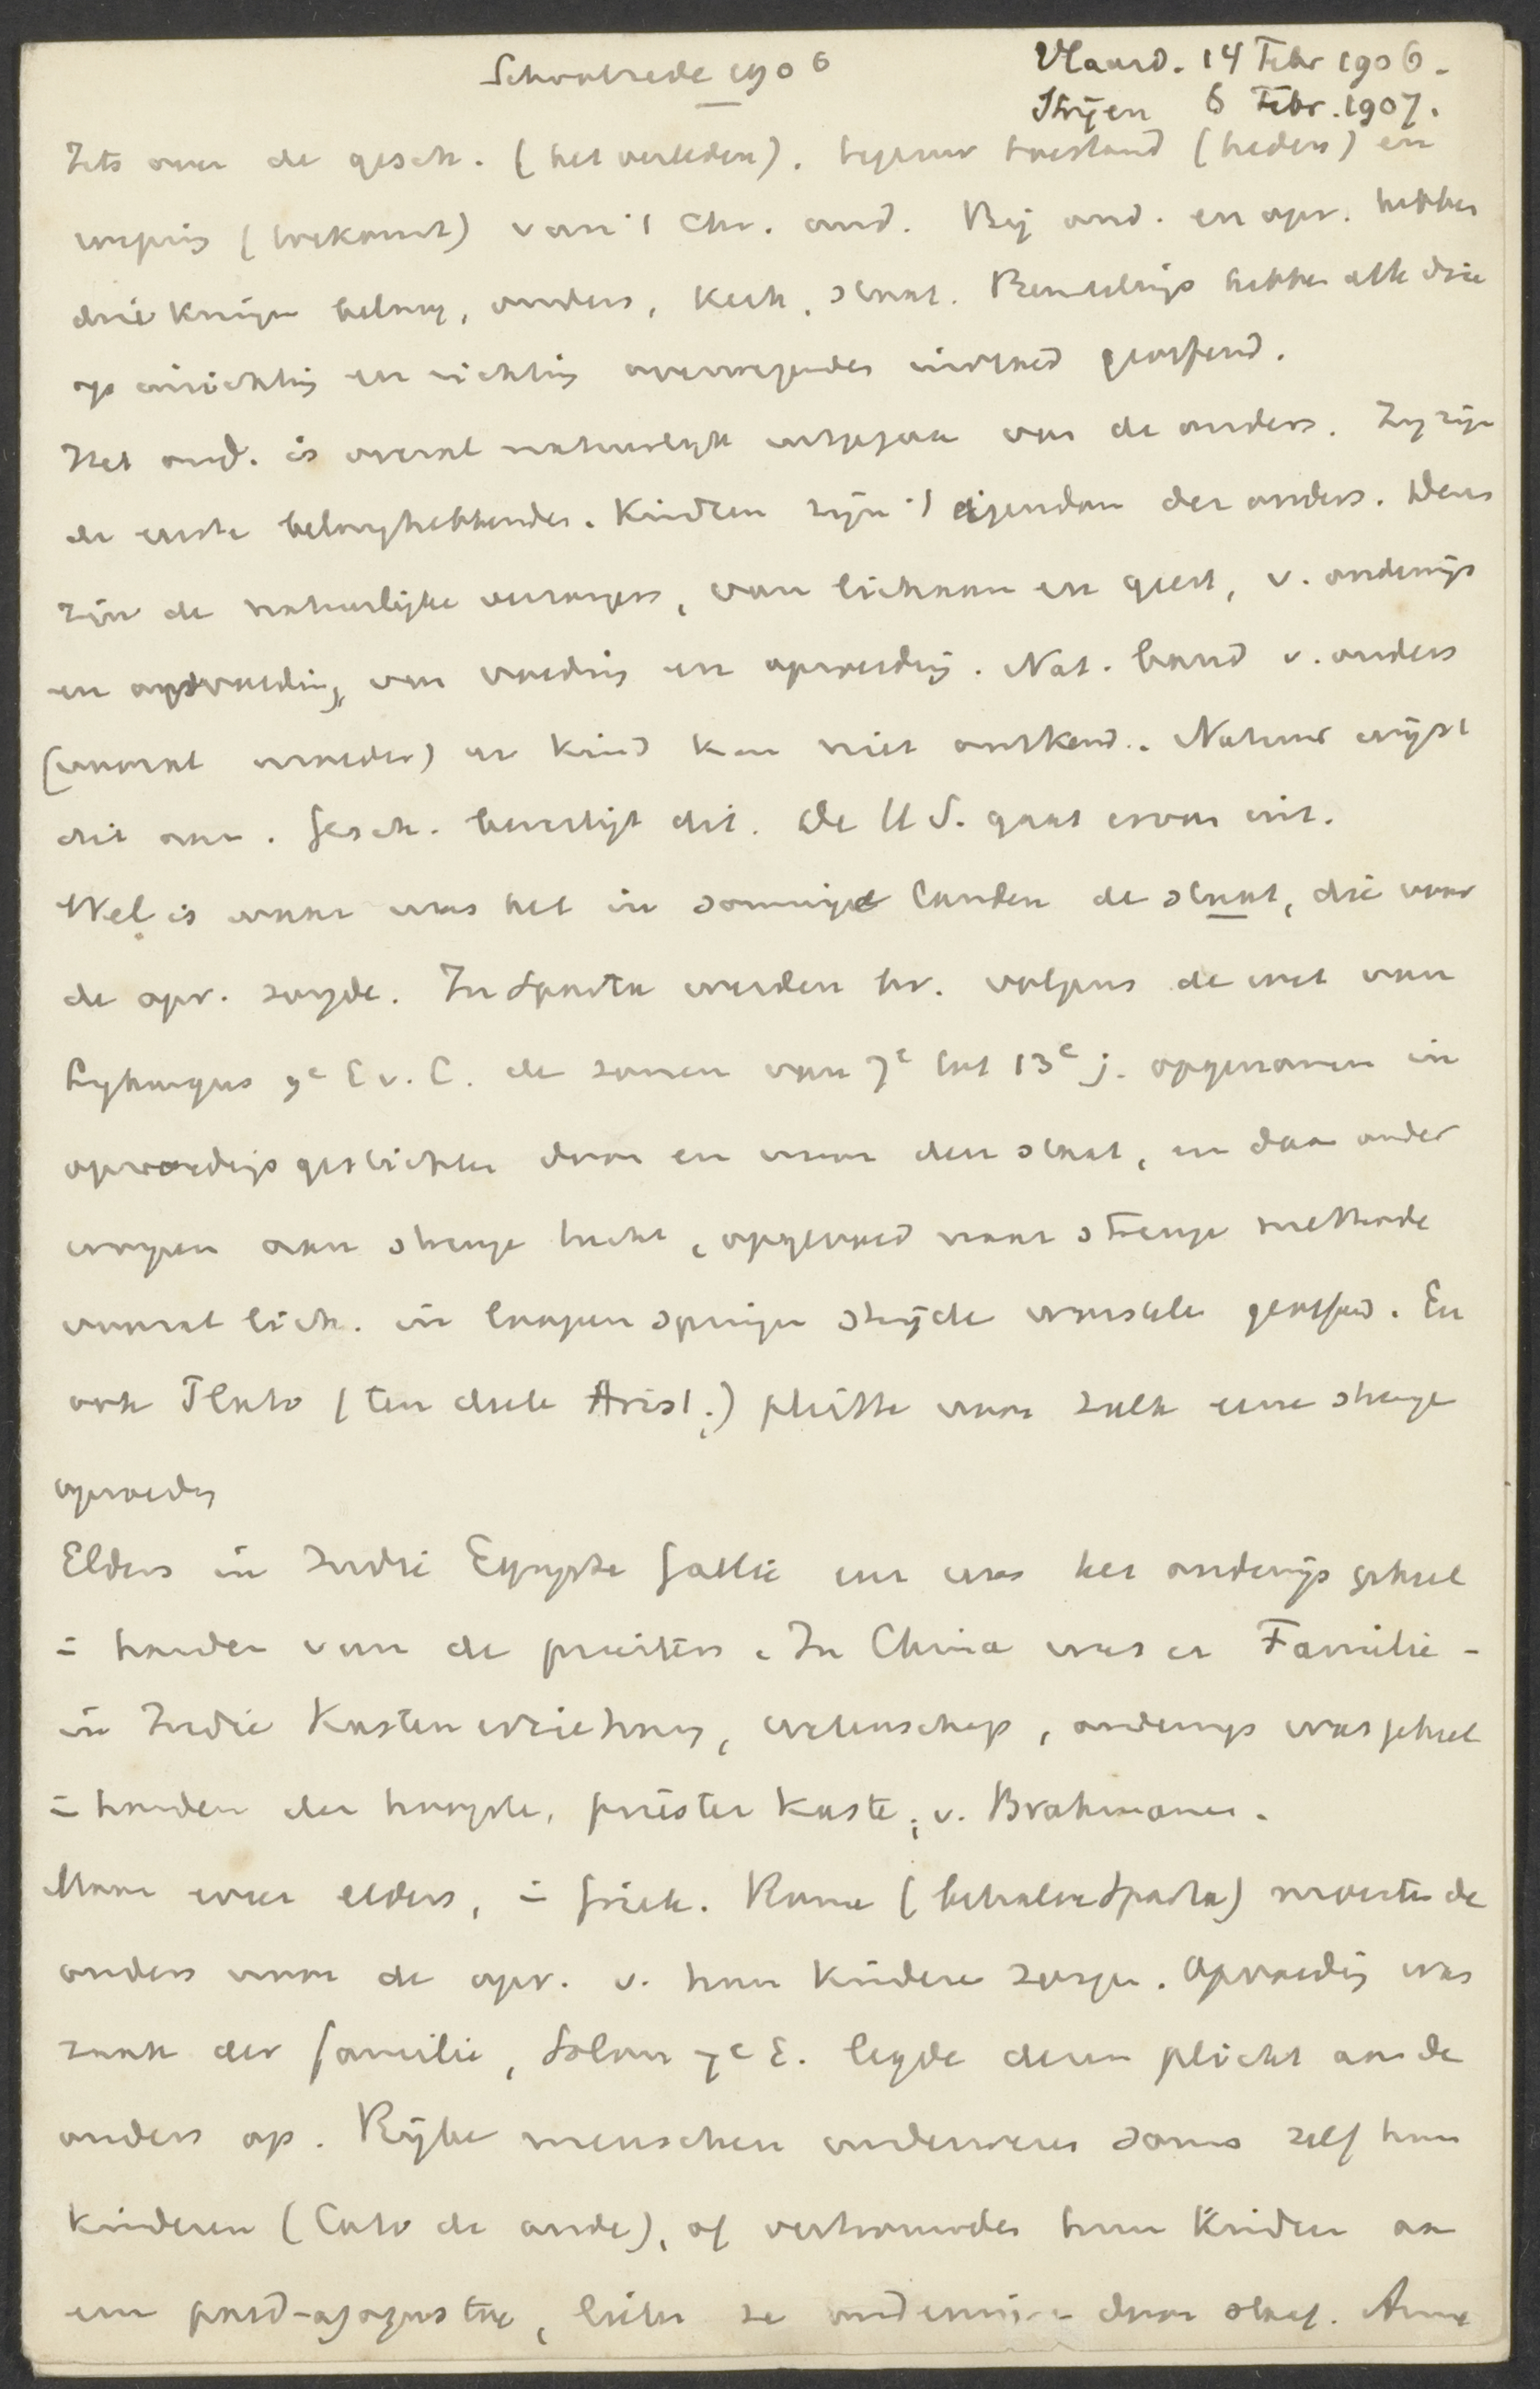 Schoolrede 1906
Vlaard. 14 Febr 1906.
Strijen 6 Febr. 1907.
Iets over de gesch. (het verleden). tegenw toestand (heden) en
(toekomst) van 't Chr. ond. Bij ond. en opv. hebben
drie kringen belang, ouders, kerk, staat. Beurtelings hebben alle drie
op inrichting en richting overwegenden invloed geoefend.
Het ond. is overal natuurlijk uitgegaan van de ouders. Zij zijn
de eerste belanghebbenden. Kindren zijn 't eigendom der ouders. Deze
zijn de natuurlijke verzorgers, van lichaam en geest, v. onderwijs
en opvoeding, van voeding en opvoeding. Nat. band v. ouders
(vooral moeder) en kind kan niet ontkend. Natuur wijst
dit aan. Gesch. bevestigt dit. De H S. gaat ervan uit.
Wel is waar was het in sommige landen de staat, die voor
de opv. zorgde. In Sparta werden bv. volgens de wet van
Lykurgus 9e E v. C. de zonen van 7e tot 13e j. opgenomen in
opvoedingsgestichten door en voor den staat, en daar onder
worpen aan strenge tucht, opgevoed naar strenge methode
vooral lich. in loopen springen strijden worstelen geoefend. En
ook Plato (ten deele Arist.) pleitte voor zulk eene strenge
opvoeding
Elders in Indië Egypte Gallië enz was het onderwijs geheel
in handen van de priesters. In China was er Familie -
in Indie Kasten erziehung, wetenschap, onderwijs was geheel
in handen der hoogste, priester kaste, v. Brahmanen.
Maar weer elders, in Griek. Rome (behalve Sparta) moesten de
ouders voor de opv. v. hun kinderen zorgen. Opvoeding was
zaak der familie, Solon 7e E. legde dezen plicht aan de
ouders op. Rijke menschen onderwezen soms zelf hun
kinderen (Cato de oude), of vertrouwden hun kindren aan
een paed-agogus toe, lieten ze onderwijzen door slaaf. Arme